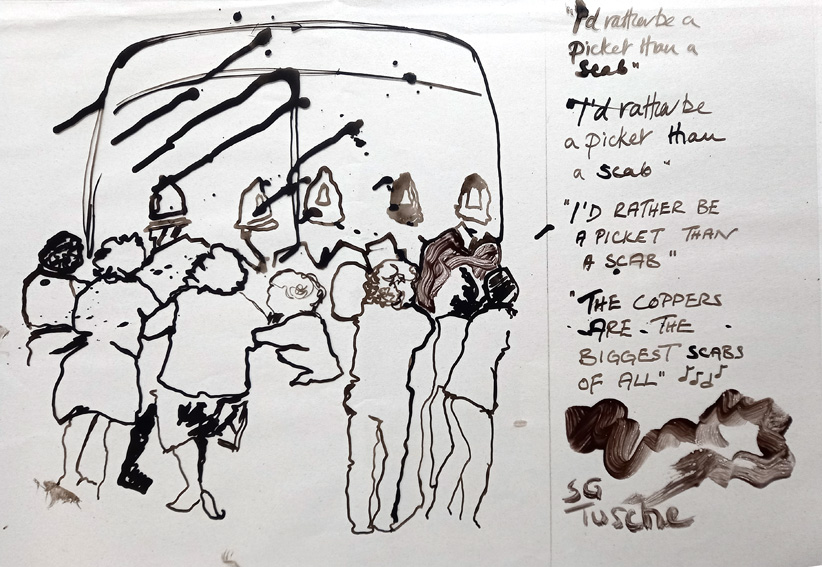 "I'd rather be a
picket than a
scab"
"I'd rather be
a picket than
a scab"
"I'D RATHER BE
A PICKET THAN
A SCAB"
"THE COPPERS
ARE THE
BIGGEST SCABS
OF ALL" ♫♫
SG
Tusche